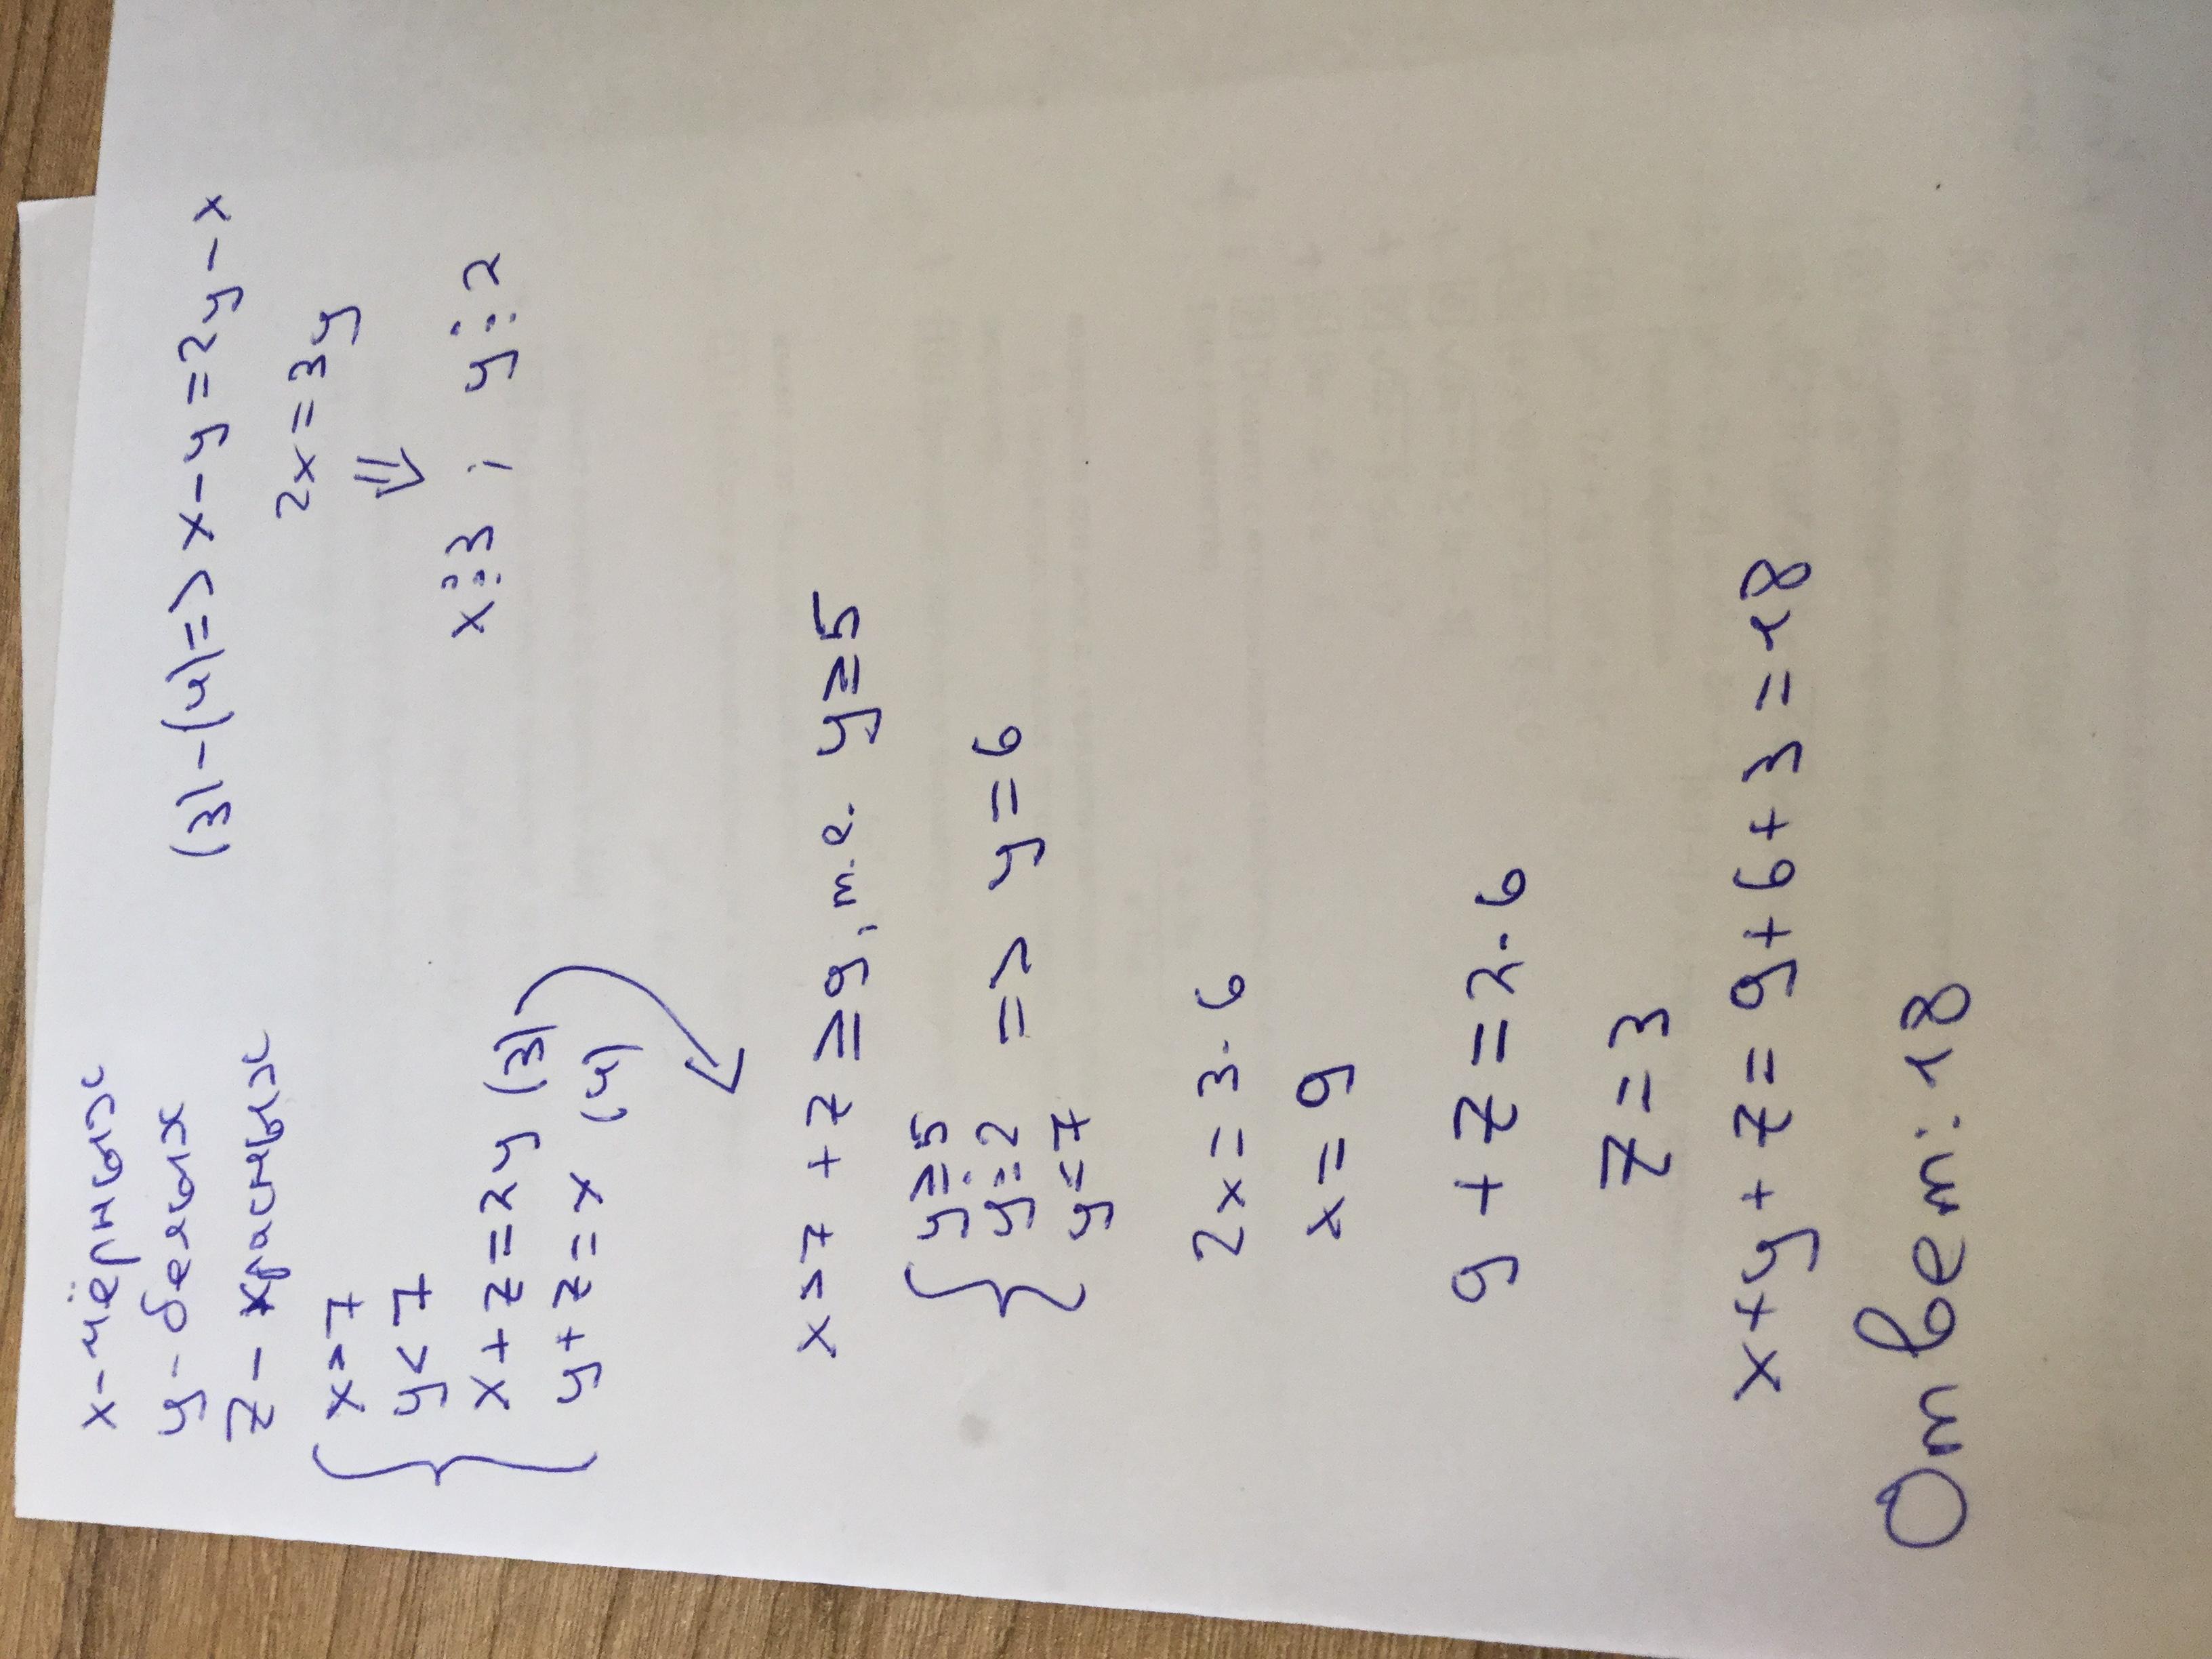 x - чёрных
y - белых
z - красных
x > 7
y < 7
x + z = 2y (3)
y + z = x (4)
(3) - (4) => x - y = 2y - x
2x = 3y
⇓
x ⋮ 3 ; y ⋮ 2
x > 7 + z ≥ 9, т.е. y ≥ 5
y ≥ 5
y ⋮ 2 => y = 6
y < 7
2x = 3·6
x = 9
9 + z = 2·6
z = 3
x + y + z = 9 + 6 + 3 = 18
Ответ: 18